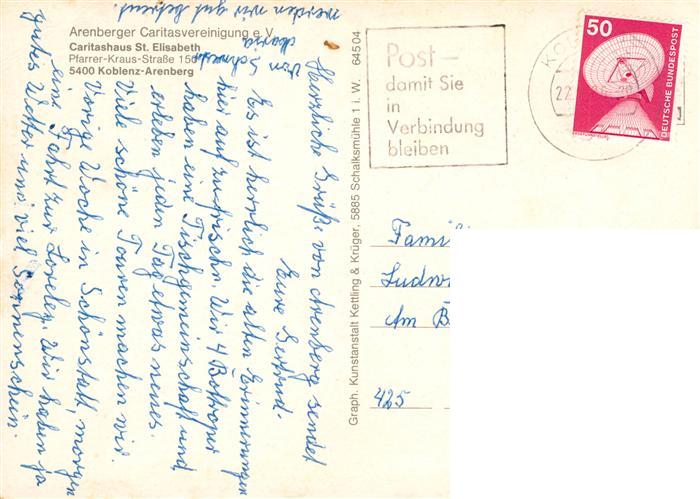 Arenberger Caritasvereinigung e.V.
Caritashaus St. Elisabeth
Pfarrer-Kraus-Straße 150
5400 Koblenz-Arenberg
Herzliche Grüße von Arenberg sendet
Eure Gertrud.
Es ist herrlich die alten Erinnerungen
hier aufzufrischn. Wir 4 Bottroper
haben eine Tischgemeinschaft und
erleben jeden Tag etwas neues.
Viele schöne Touren machen wir.
Vorige Woche in Schönstatt, morgen
eine Fahrt zur Loreley. Wir haben ja
gutes Wetter und viel Sonnenschein.
Von Schwester
Maria
werden wir gut betreut.
Graph. Kunstanstalt Kettling & Krüger, 5885 Schalksmühle 1 i. W. 64504
Post –
damit Sie
in
Verbindung
bleiben
50
DEUTSCHE BUNDESPOST
22
Famili
Ludw
Am B
425